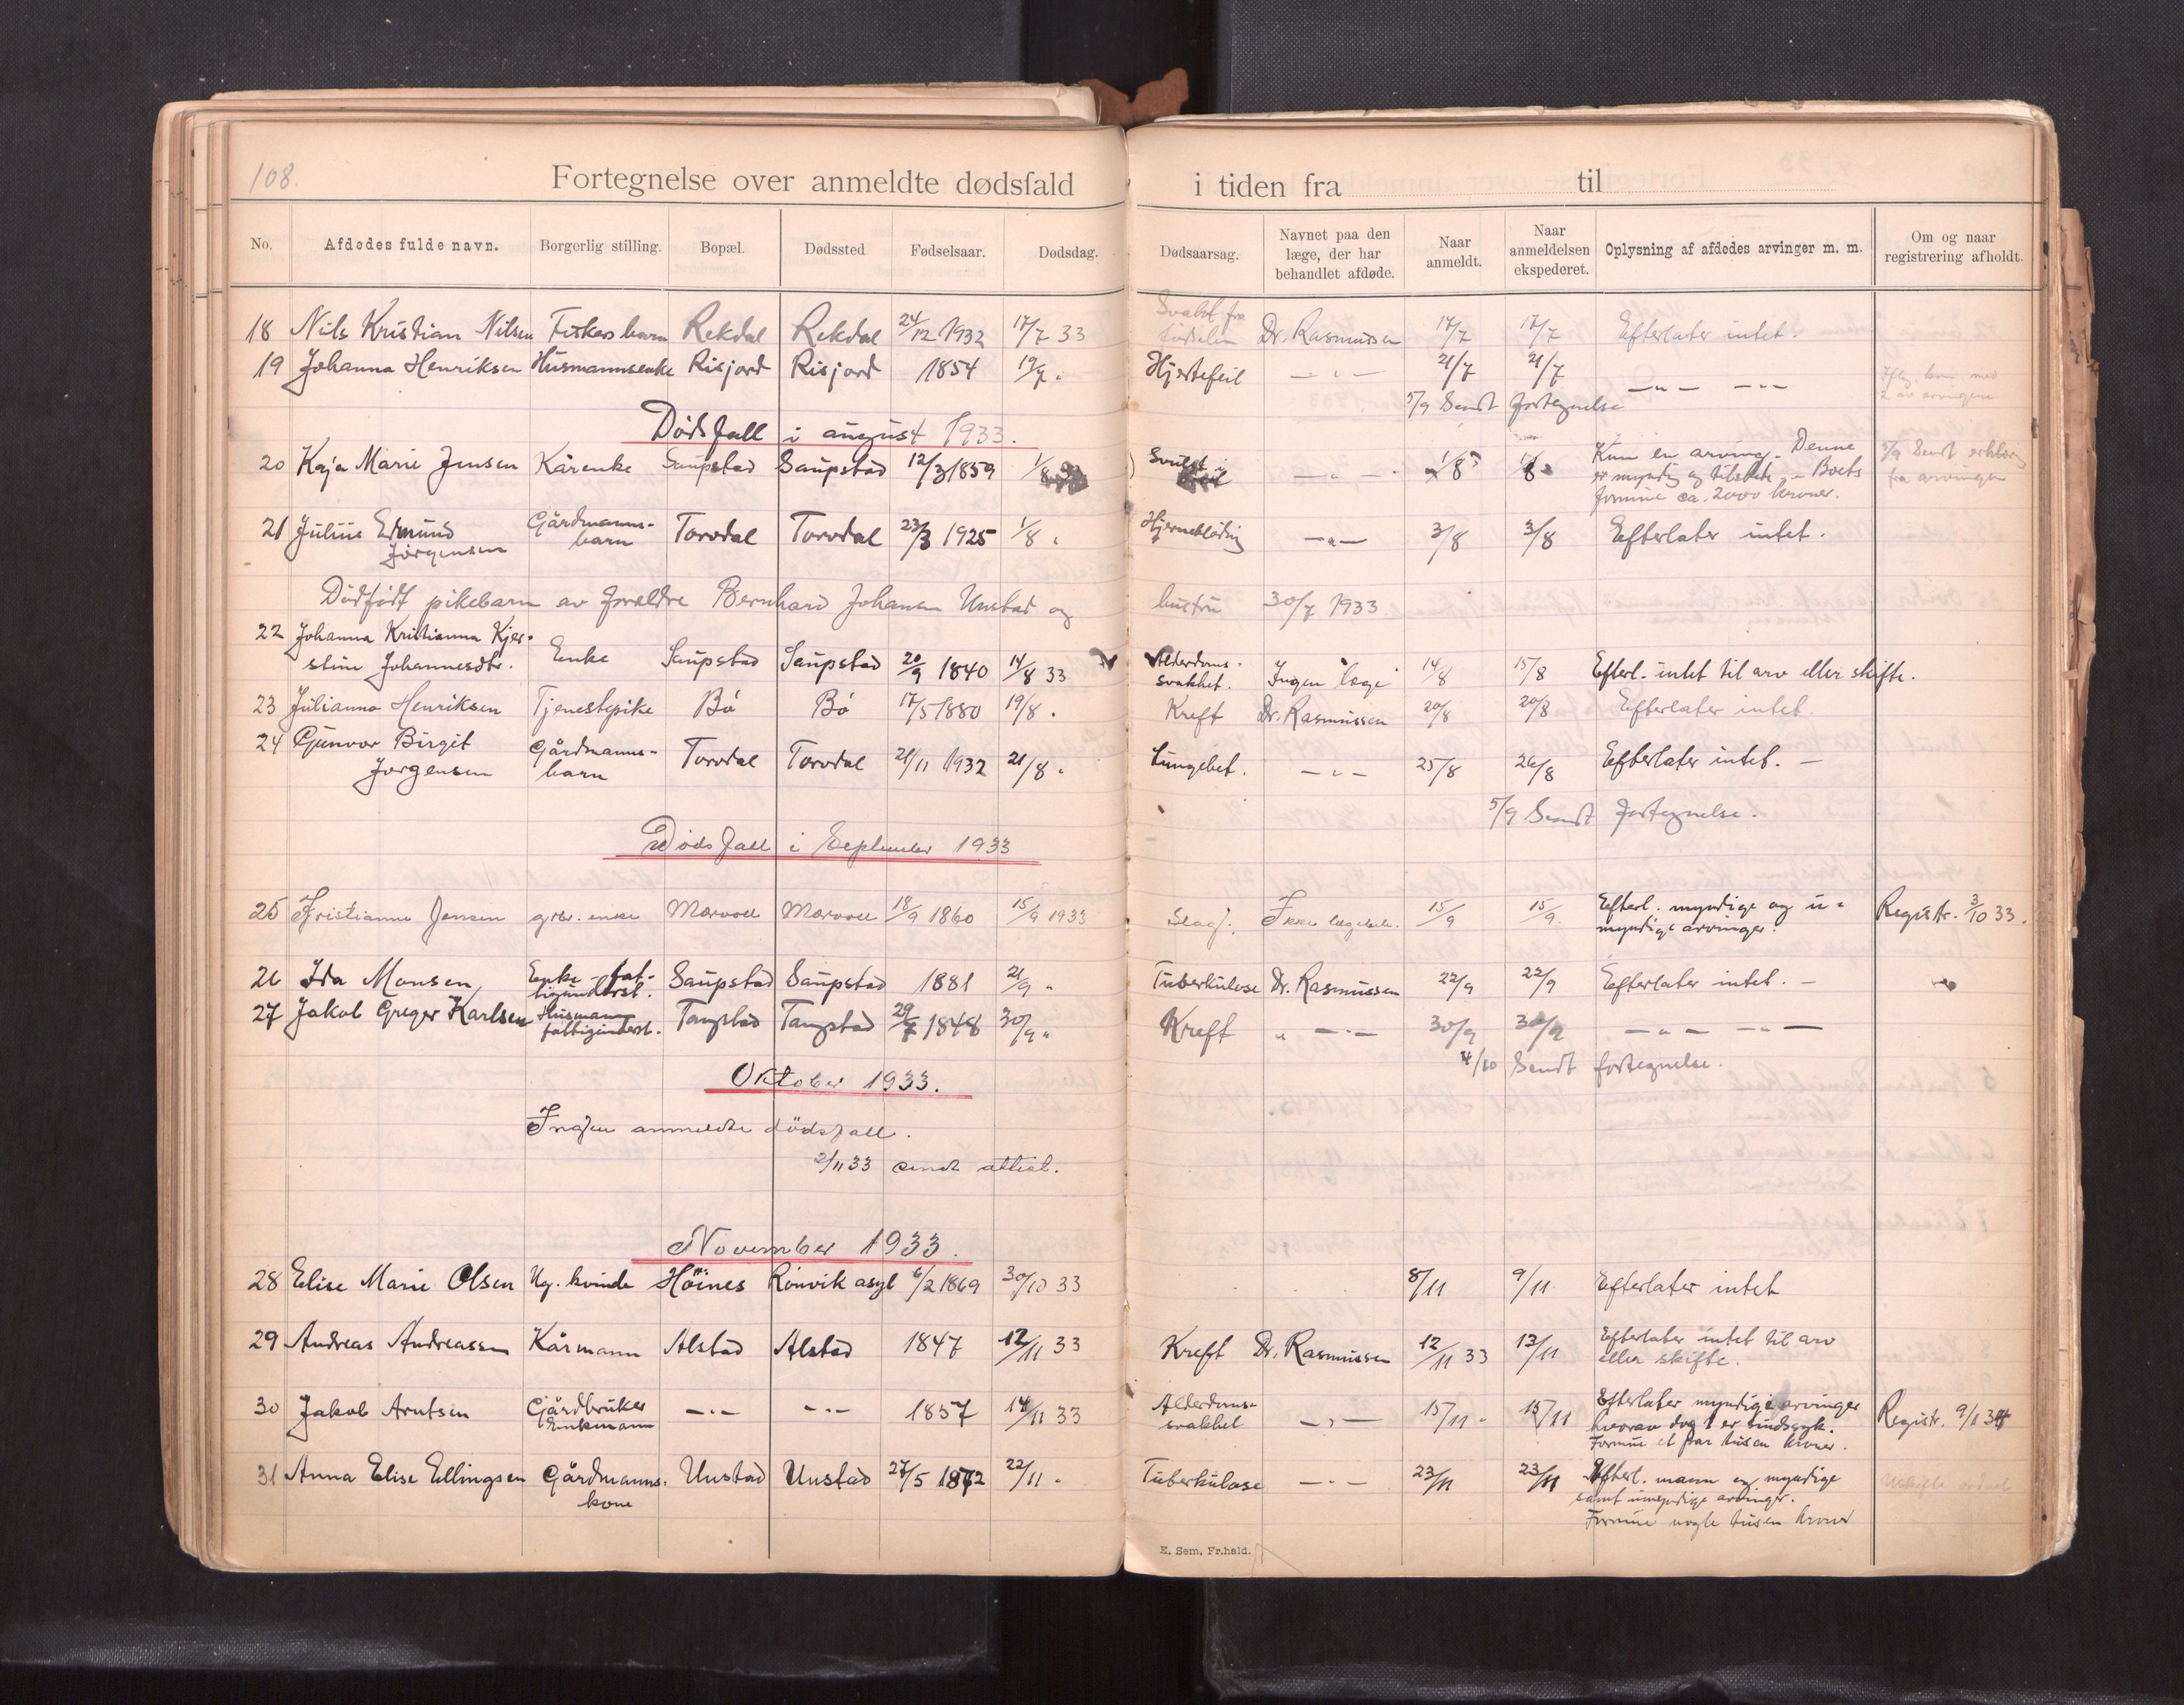 108.
Fortegnelse over anmeldte dødsfald i tiden fra til
No. Afdødes fulde navn. Borgerlig stilling. Bopæl. Dødssted Fødselsaar. Dødsdag. Dødsaarsag. Navnet paa den læge, der har behandlet afdøde. Naar anmeldt. Naar anmeldelsen ekspederet. Oplysning af afdødes arvinger m. m. Om og naar registrering afholdt.
18 Nils Kristian Nilsen Fiskers barn Rekdal Rekdal 24/12 1932 17/7 33 Svakt fra fødselen Dr. Rasmussen 17/7 17/7 Efterlater intet.
19 Johanna Henriksen Husmannsenke Risjord Risjord 1854 19/7 " Hjertefeil — " — 21/7 21/7 — " — — " — med 2 av arvingene
5/9 Sendt fortegnelse
Dødsfall i august 1933.
20 Kaja Marie Jensen Kårenke Saupstad Saupstad 12/3 1859 1/8 33 Svulst i — " — 1/8 1/8 Kun en arving. Denne
er myndig og tilstede. – Boets
formue ca. 2000 kroner.
5/9 Sendt erklæring
fra arvingen
21 Julius Edmund Jørgensen Gårdmanns-barn Torvdal Torvdal 23/3 1925 1/8 " Hjerneblødning — " — 3/8 3/8 Efterlater intet.
Dødfødt pikebarn av foreldre Bernhard Johansen Unstad og hustru 30/7 1933.
22 Johanna Kristianna Kjer-
stine Johannesdtr. Enke Saupstad Saupstad 20/9 1840 14/8 33 Alderdoms-svakhet. Ingen læge 14/8 15/8 Efterl. intet til arv eller skifte.
23 Julianna Henriksen Tjenestepike Bø Bø 17/5 1880 19/8 " Kreft Dr. Rasmussen 20/8 20/8 Efterlater intet.
24 Gunvor Birgit Jørgensen Gårdmanns-barn Torvdal Torvdal 21/11 1932 21/8 " Lungebet. — " — 25/8 26/8 Efterlater intet. —
5/9 Sendt fortegnelse.
Dødsfall i September 1933
25 Kristianne Jensen grbr. enke Mærvoll Mærvoll 18/9 1860 15/9 1933 Slag. Ikke lægebeh. 15/9 15/9. Efterl. myndige og u-
myndige arvinger.
Registr. 3/10 33.
26 Ida Monsen Enke – fat-
tigunderst. Saupstad Saupstad 1881 21/9 " Tuberkulose Dr. Rasmussen 22/9 22/9 Efterlater intet. —
27 Jakob Greger Karlsen Husmann
fattigunderst. Tangstad Tangstad 29/7 1848 30/9 " Kreft " — " — 30/9 30/9 — " — — " —
4/10 Sendt fortegnelse.
Oktober 1933.
Ingen anmeldte dødsfall.
2/11 33 sendt attest.
November 1933.
28 Elise Marie Olsen Ug. kvinde Høines Rønvik asyl 6/2 1869 30/10 33 8/11 9/11 Efterlater intet
29 Andreas Andreassen Kårmann Alstad Alstad 1847 12/11 33 Kreft Dr. Rasmussen 12/11 33 13/11 Efterlater intet til arv
eller skifte.
30 Jakob Arntsen Gårdbruker
Enkemann — " — — " — 1857 14/11 33 Alderdoms-
svakhet — " — 15/11 " 15/11 Efterlater myndige arvinger
hvorav dog 1 er sindssyk.
Formue et par tusen kroner.
Registr. 9/1 34
31 Anna Elise Ellingsen Gårdmanns-
kone Unstad Unstad 27/5 1872 22/11 " Tuberkulose — " — 23/11 23/11 Efterl. mann og myndige
samt umyndige arvinger.
Formue nogle tusen kroner
E. Sem, Fr.hald.